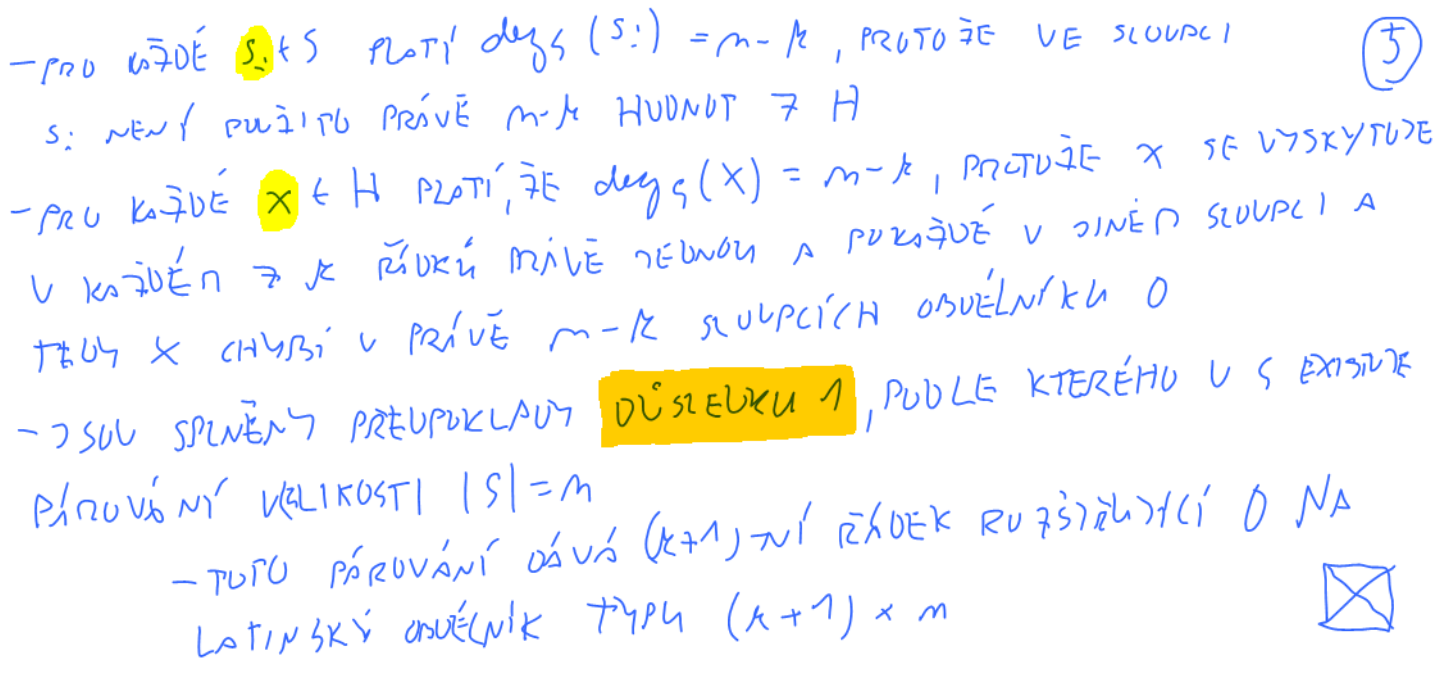 - PRO KAŽDÉ s_i ∈ S PLATÍ deg_G (s_i) = n - k, PROTOŽE VE SLOUPCI ⑤
s_i NENÍ POUŽITO PRÁVĚ n-k HODNOT Z H
- PRO KAŽDÉ x ∈ H PLATÍ, ŽE deg_G (x) = n - k, PROTOŽE x SE VYSKYTUJE
V KAŽDÉM Z k ŘÁDKŮ PRÁVĚ JEDNOU A POKAŽDÉ V JINÉM SLOUPCI A
TEDY x CHYBÍ V PRÁVĚ n - k SLOUPCÍCH OBDÉLNÍKU O
- JSOU SPLNĚNY PŘEDPOKLADY DŮSLEDKU 1, PODLE KTERÉHO V G EXISTUJE
PÁROVÁNÍ VELIKOSTI |S| = n
- TOTO PÁROVÁNÍ DÁVÁ (k+1)-NÍ ŘÁDEK ROZŠIŘUJÍCÍ O NA
LATINSKÝ OBDÉLNÍK TYPU (k+1) × n